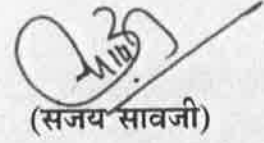 (सजय सावजी)